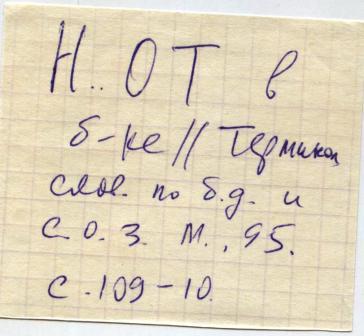 Н.. О Т в
б-ке // Термикол
слов. по б.д. и
С. О. З. М., 95.
С. 109-10.